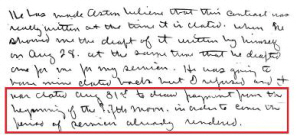 He has made Aston believe that this contract was
really written at the time it is dated. When he
showed me the draft of it written by himself
on Aug 28. At the same time that he drafted
one for me for my service. It was going to
have mine dated back but I refused and it
was dated Aug 31st to draw payment from the
beginning of the fifth month in order to cover the
period of service already rendered.